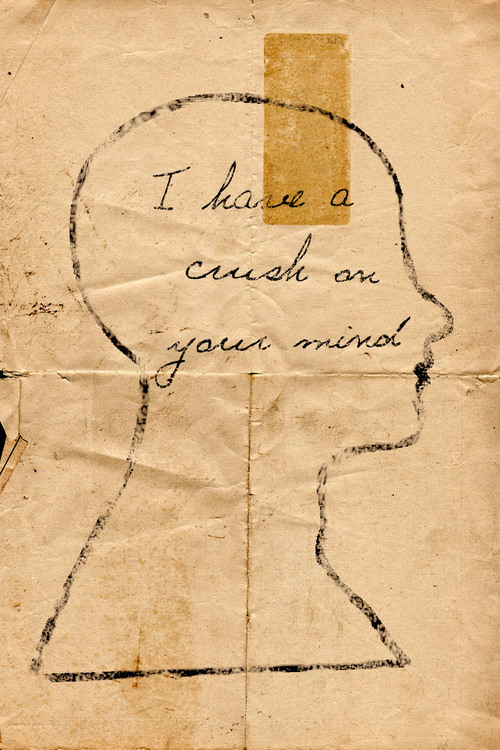 I have a
crush on
your mind